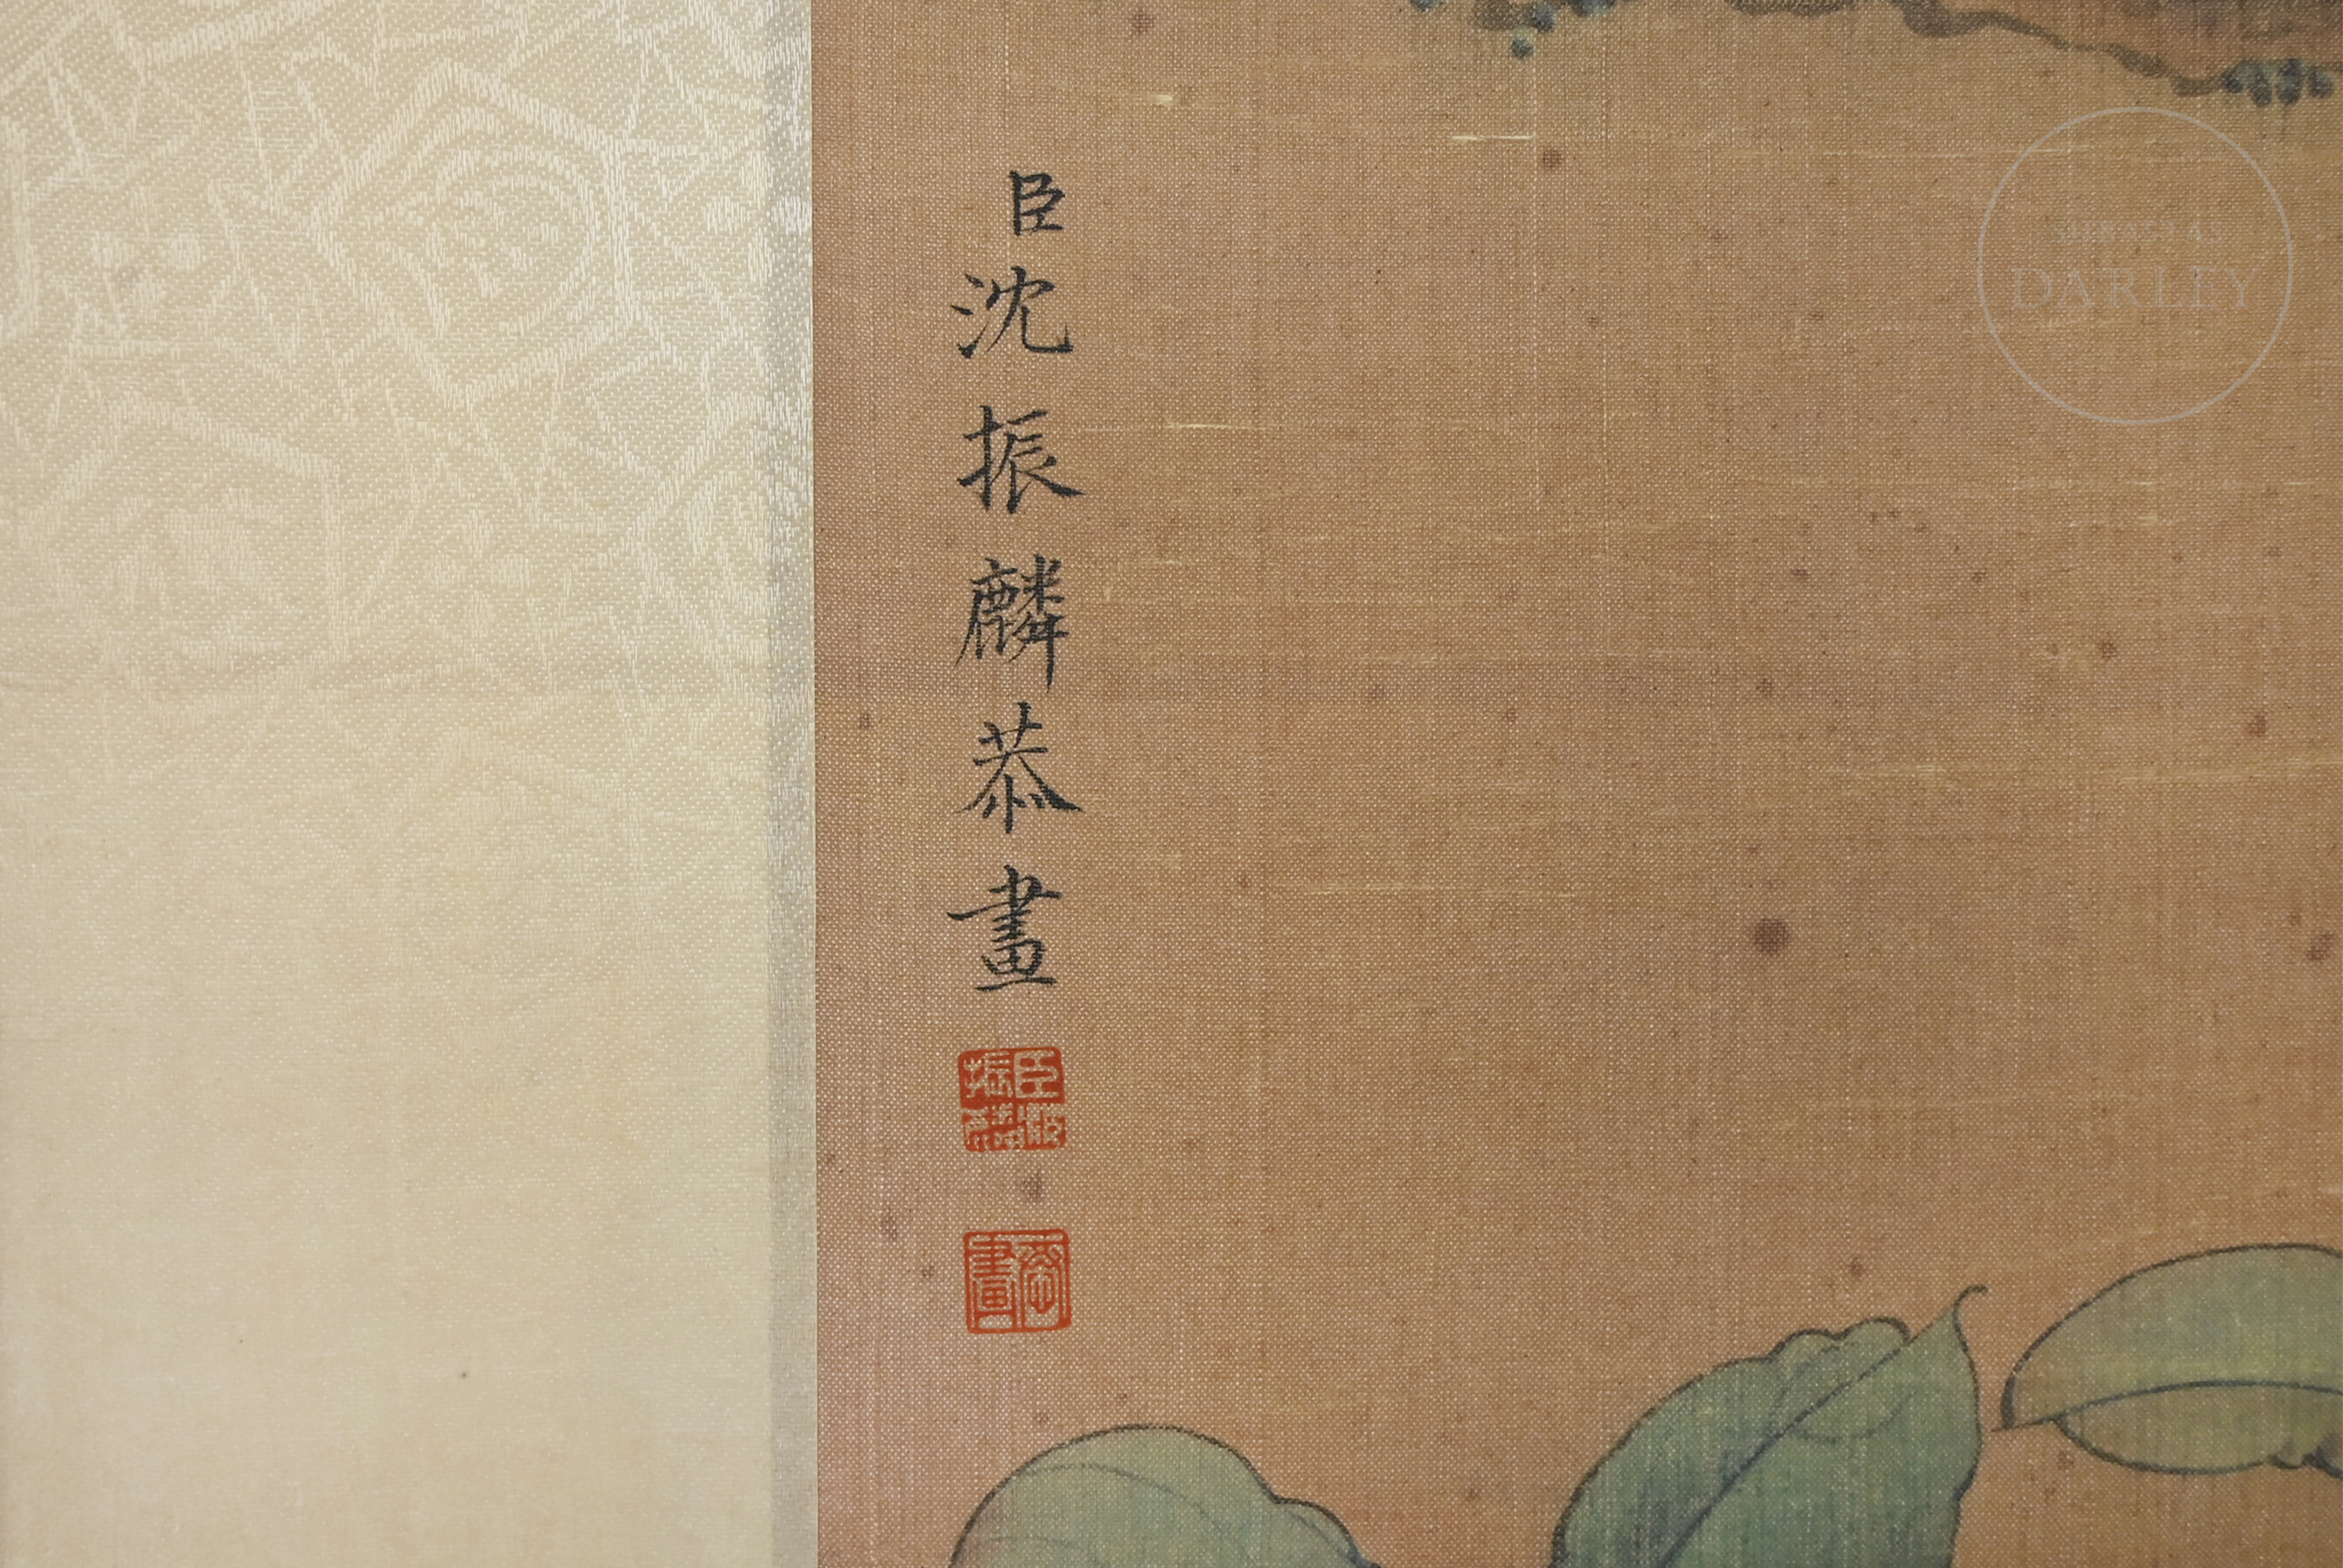 臣沈振麟恭畫
恭畫
SUBASTAS
DARLEY